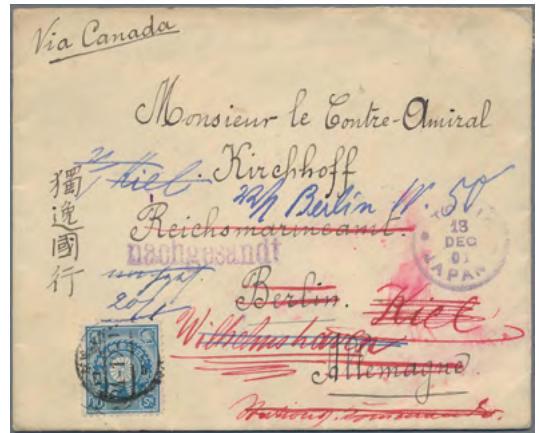 Via Canada
Monsieur le Contre-Amiral
Kirchhoff
Kiel.
Berlin W. 50
Reichsmarineamt.
nachgesandt
獨逸國行
Berlin.
Kiel
Wilhelmshaven
Allemagne
18
DEC
01
JAPAN